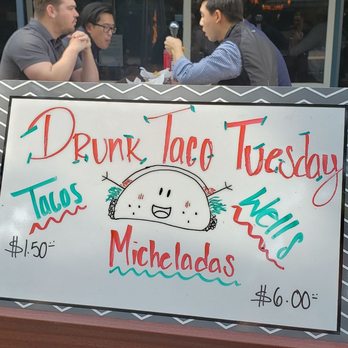 Drunk Taco Tuesday
Tacos
Wells
Micheladas
$1.50
$6.00